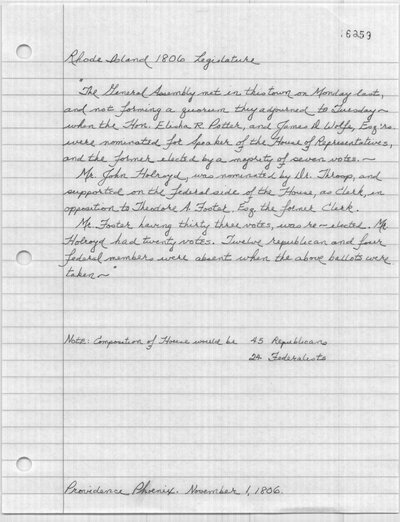 16259
Rhode Island 1806 Legislature
"The General Assembly met in this town on Monday last,
and not forming a quorum they adjourned to Tuesday ~
when the Hon. Elisha R. Potter, and James D. Wolfe, Esq'rs.
were nominated for Speaker of the House of Representatives,
and the former elected by a majority of seven votes. ~
Mr. John Holroyd, was nominated by Dr. Throop, and
supported on the federal side of the House, as Clerk, in
opposition to Theodore A. Foster, Esq. the former Clerk.
Mr. Foster having thirty three votes, was re-elected. Mr.
Holroyd had twenty votes. Twelve republican and four
federal members were absent when the above ballots were
taken ~"
Note: Composition of House would be 45 Republicans
24 Federalists
Providence Phoenix. November 1, 1806.